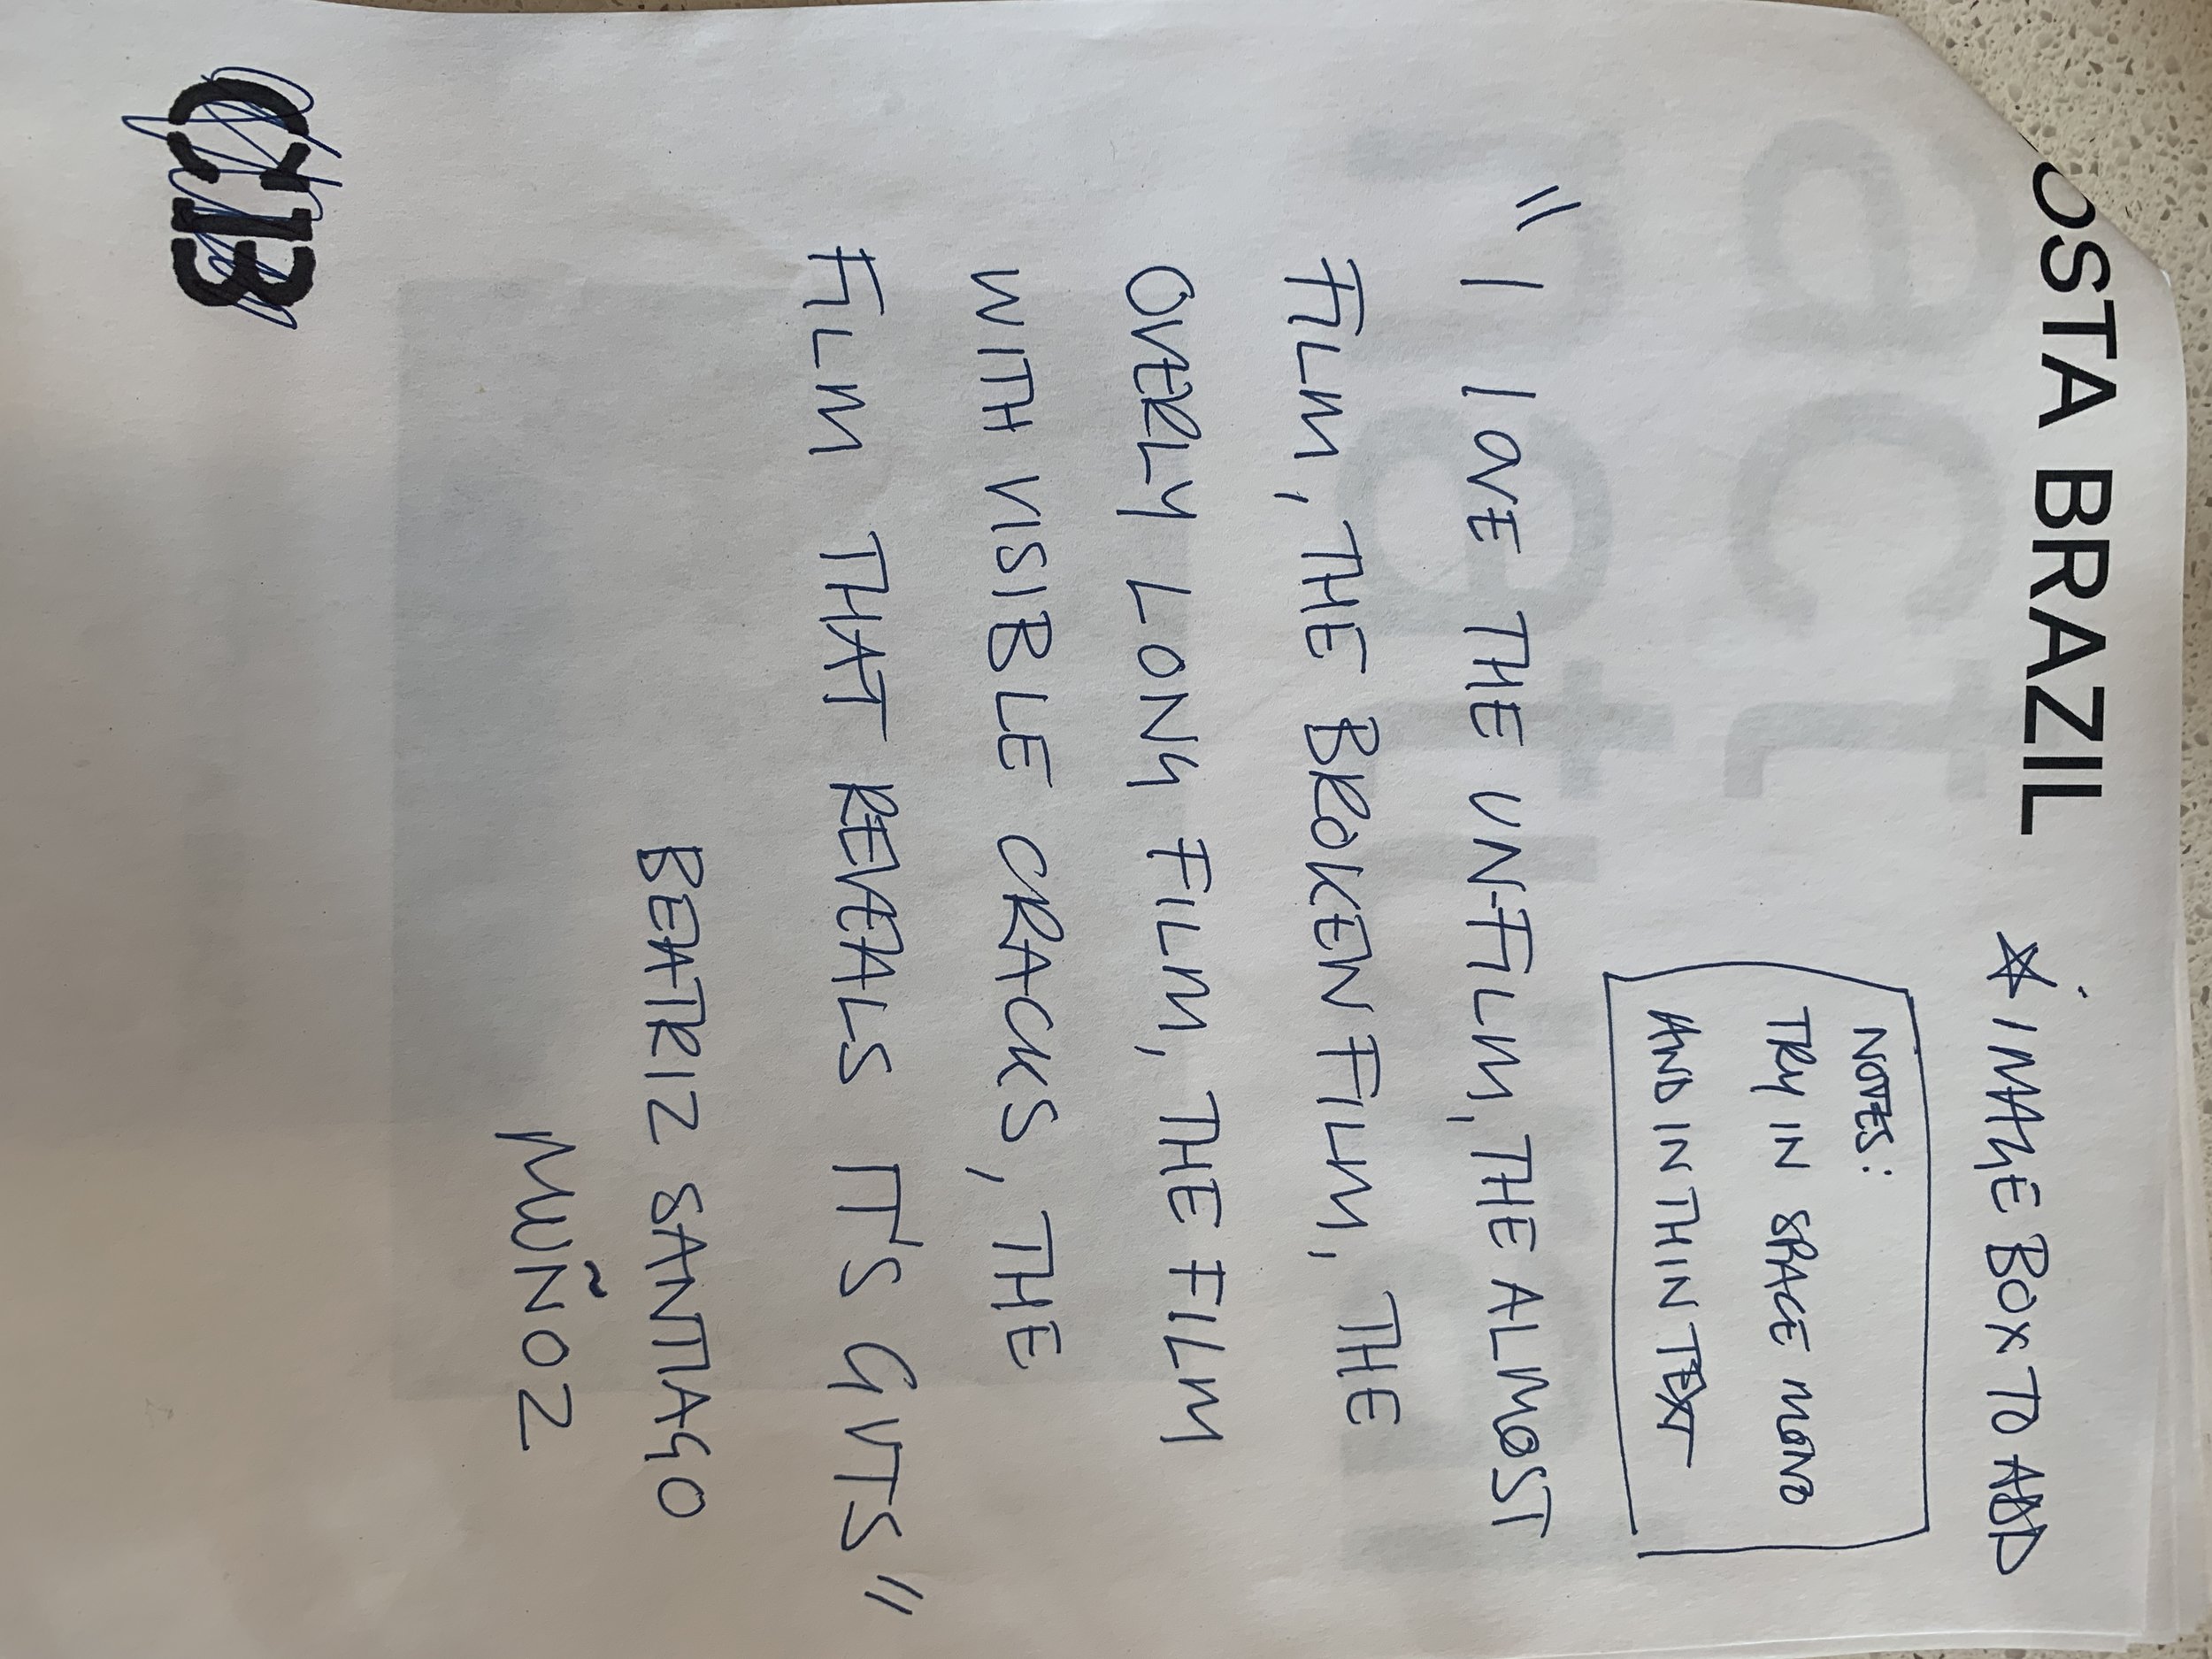 OSTA BRAZIL
* IMAGE BOX TO ADD
NOTES:
TRY IN SPACE MONO
AND IN THIN TEXT
" I LOVE THE UN-FILM, THE ALMOST
FILM, THE BROKEN FILM, THE
OVERLY LONG FILM, THE FILM
WITH VISIBLE CRACKS, THE
FILM THAT REVEALS IT'S GUTS "
BEATRIZ SANTIAGO
MUÑOZ